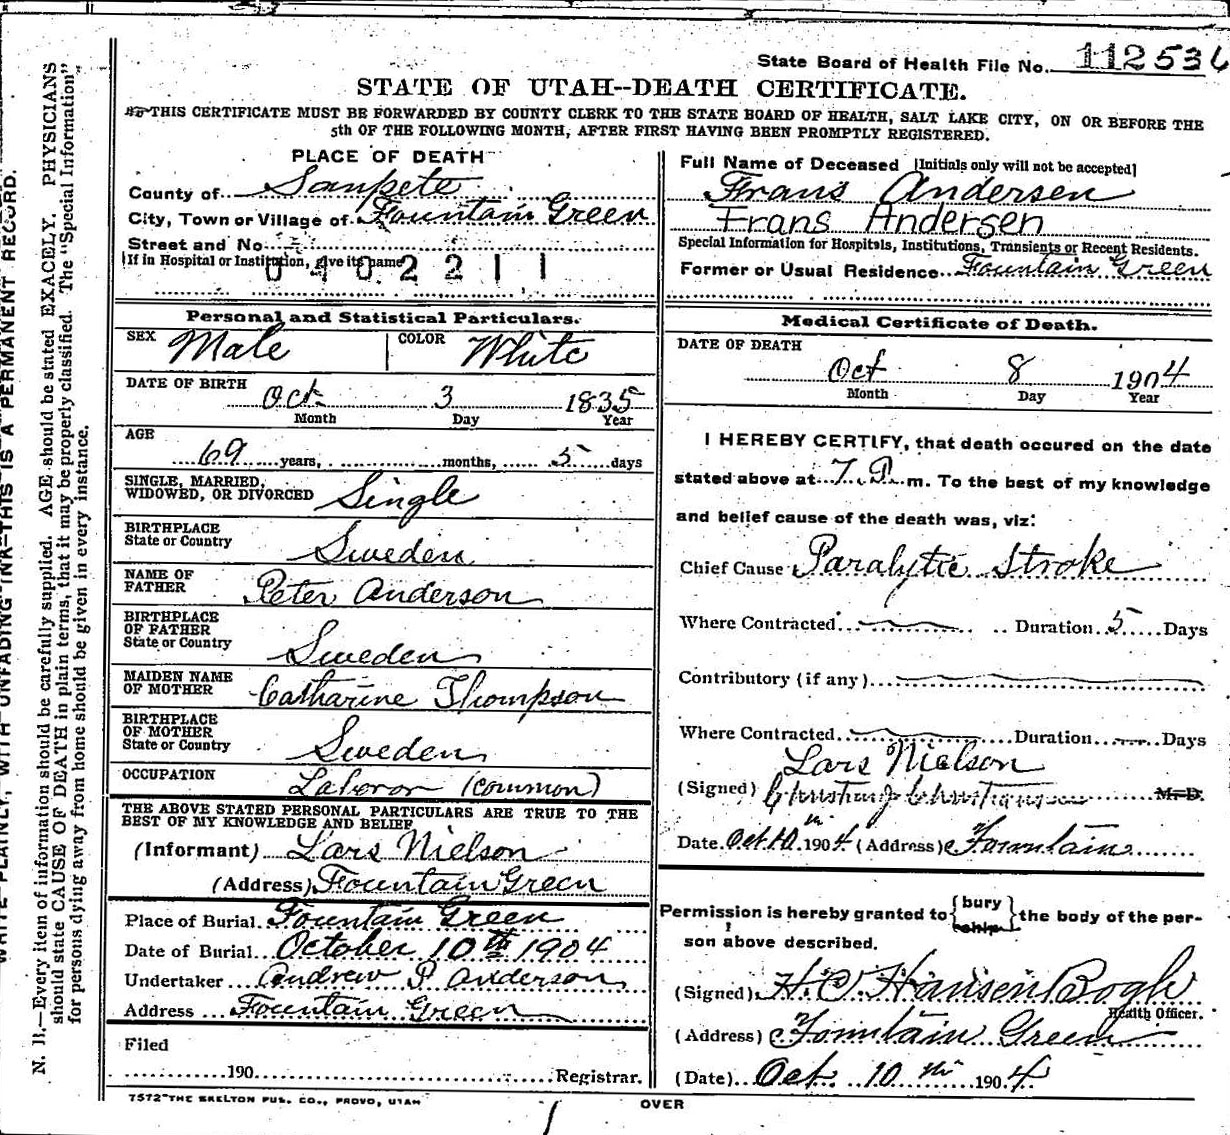 State Board of Health File No. 112536
STATE OF UTAH--DEATH CERTIFICATE.
THIS CERTIFICATE MUST BE FORWARDED BY COUNTY CLERK TO THE STATE BOARD OF HEALTH, SALT LAKE CITY, ON OR BEFORE THE
5th OF THE FOLLOWING MONTH, AFTER FIRST HAVING BEEN PROMPTLY REGISTERED.
PLACE OF DEATH
County of Sanpete
City, Town or Village of Fountain Green
Street and No
(If in Hospital or Institution, give its name)
0402211
Personal and Statistical Particulars.
SEX Male COLOR White
DATE OF BIRTH Oct 3 1835
Month Day Year
AGE
69 years, months, 5 days
SINGLE, MARRIED,
WIDOWED, OR DIVORCED Single
BIRTHPLACE
State or Country Sweden
NAME OF
FATHER Peter Anderson
BIRTHPLACE
OF FATHER
State or Country Sweden
MAIDEN NAME
OF MOTHER Catharine Thompson
BIRTHPLACE
OF MOTHER
State or Country Sweden
OCCUPATION Laboror (common)
THE ABOVE STATED PERSONAL PARTICULARS ARE TRUE TO THE
BEST OF MY KNOWLEDGE AND BELIEF
(Informant) Lars Nielson
(Address) Fountain Green
Place of Burial Fountain Green
Date of Burial October 10th 1904
Undertaker Andrew P Anderson
Address Fountain Green
Filed
190 Registrar.
7572-THE SKELTON PUB. CO., PROVO, UTAH
Full Name of Deceased [Initials only will not be accepted]
Frans Andersen
Frans Andersen
Special Information for Hospitals, Institutions, Transients or Recent Residents.
Former or Usual Residence Fountain Green
Medical Certificate of Death.
DATE OF DEATH
Oct 8 1904
Month Day Year
I HEREBY CERTIFY, that death occured on the date
stated above at 7. P. m. To the best of my knowledge
and belief cause of the death was, viz:
Chief Cause Paralytic Stroke
Where Contracted Duration 5 Days
Contributory (if any)
Where Contracted Duration Days
Lars Nielson
(Signed) M.D.
Date Oct 10th 1904 (Address) Fountain
Permission is hereby granted to {bury
ship} the body of the per-
son above described.
(Signed) H C Hansen Bogh
Health Officer.
(Address) Fountain Green
(Date) Oct. 10th 1904
OVER
N. B.—Every item of information should be carefully supplied. AGE should be stated EXACELY. PHYSICIANS
should state CAUSE OF DEATH in plain terms, that it may be properly classified. The "Special Information"
for persons dying away from home should be given in every instance.
WRITE PLAINLY, WITH UNFADING INK—THIS IS A PERMANENT RECORD.